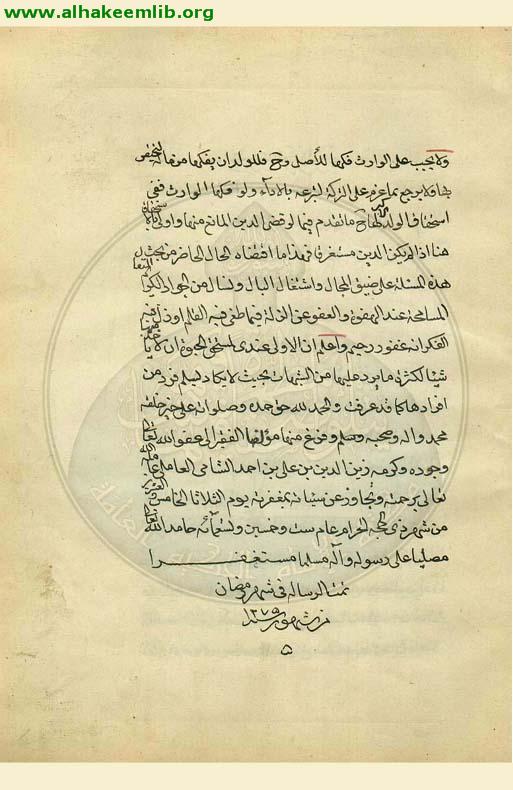 www.alhakeemlib.org
ولا يجب على الوارث فكها للأصل وح فللولد ان يفكها من ماله ليختص
بها ولا يرجع بما غرم على التركة لتبرعه بالاداء ولو فكها الوارث ففي
استحقاق الولد لها ح ما تقدم فيما لو قضى الدين المانع منها واولى
هنا اذا لم يكن الدين مستغرقا فهذا ما اقتضاه الحال الحاضر من بحث
هذه المسئلة على ضيق المجال واشتغال البال ونسال من الجواد الكريم
المسامحة عند الهفوة والعفو عن الزلة فيما طغى فيه القلم او زل فيه
الفكر انه غفور رحيم واعلم ان الاولى عندي لمستحق الحبوة ان لا ياخذ منها
شيئا لكثرة ما يرد عليها من الشبهات بحيث لا يكاد يسلم فرد من
افرادها كما قد عرفت والحمد لله حق حمده وصلواته على خير خلقه
محمد واله وصحبه وسلم وفرغ منها مؤلفها الفقير الى عفو الله تعالى
وجوده وكرمه زين الدين بن علي بن احمد الشامي العاملي عامله الله
تعالى برحمته وتجاوز عن سيئاته بمغفرته يوم الثلاثا الخامس
من شهر ذي الحجة الحرام عام ست وخمسين وتسعمائه حامدا لله تعالى
مصليا على رسوله وآله مسلما مستغفرا
تمت الرسالة في شهر رمضان
من شهور سنة ١٢٧٥
٥